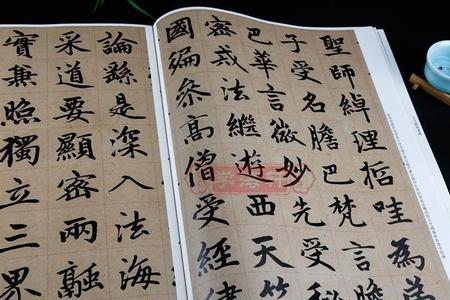 聖師綽理哲哇為
子受名膽巴梵言膽
巴華言微妙先受秘
密戒法繼遊西天竺
國徧參高僧受經律
論繇是深入法海
采道要顯密兩融
實兼照獨立三界